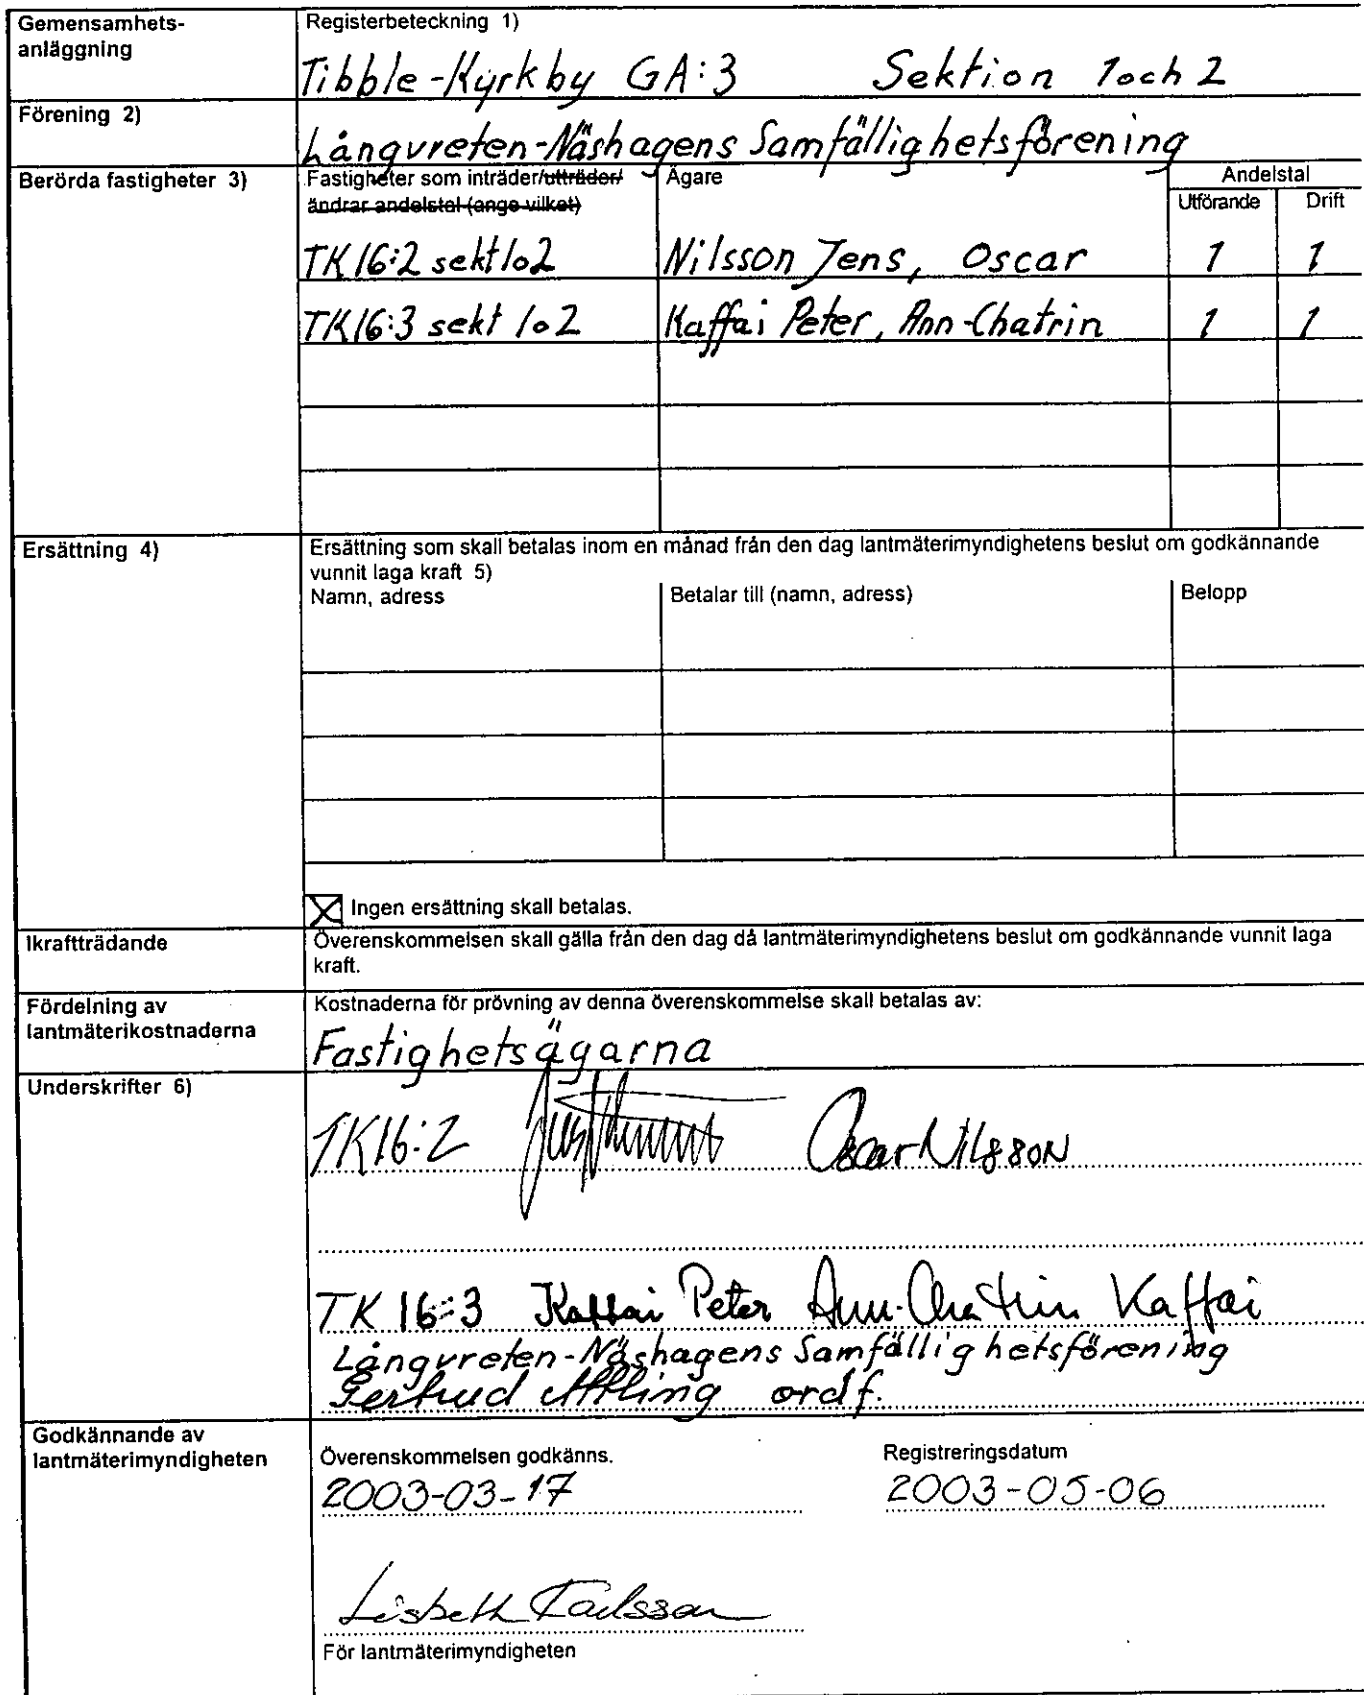 Gemensamhets-
anläggning
Registerbeteckning 1)
Tibble-Kyrkby GA:3 Sektion 1 och 2
Förening 2)
Långvreten-Näshagens Samfällighetsförening
Berörda fastigheter 3)
Fastigheter som inträder/utträder/
ändrar andelstal (ange vilket)
Ägare
Andelstal
Utförande Drift
TK 16:2 sekt 1o2 Nilsson Jens, Oscar 1 1
TK 16:3 sekt 1o2 Kaffai Peter, Ann-Chatrin 1 1
Ersättning 4)
Ersättning som skall betalas inom en månad från den dag lantmäterimyndighetens beslut om godkännande
vunnit laga kraft 5)
Namn, adress Betalar till (namn, adress) Belopp
Ingen ersättning skall betalas.
Ikraftträdande
Överenskommelsen skall gälla från den dag då lantmäterimyndighetens beslut om godkännande vunnit laga
kraft.
Fördelning av
lantmäterikostnaderna
Kostnaderna för prövning av denna överenskommelse skall betalas av:
Fastighetsägarna
Underskrifter 6)
TK16:2 Oscar Nilsson
TK 16:3 Kaffai Peter Ann-Chatrin Kaffai
Långvreten-Näshagens Samfällighetsförening
Gertrud ordf.
Godkännande av
lantmäterimyndigheten
Överenskommelsen godkänns.
2003-03-17
Registreringsdatum
2003-05-06
Lisbeth Karlsson
För lantmäterimyndigheten